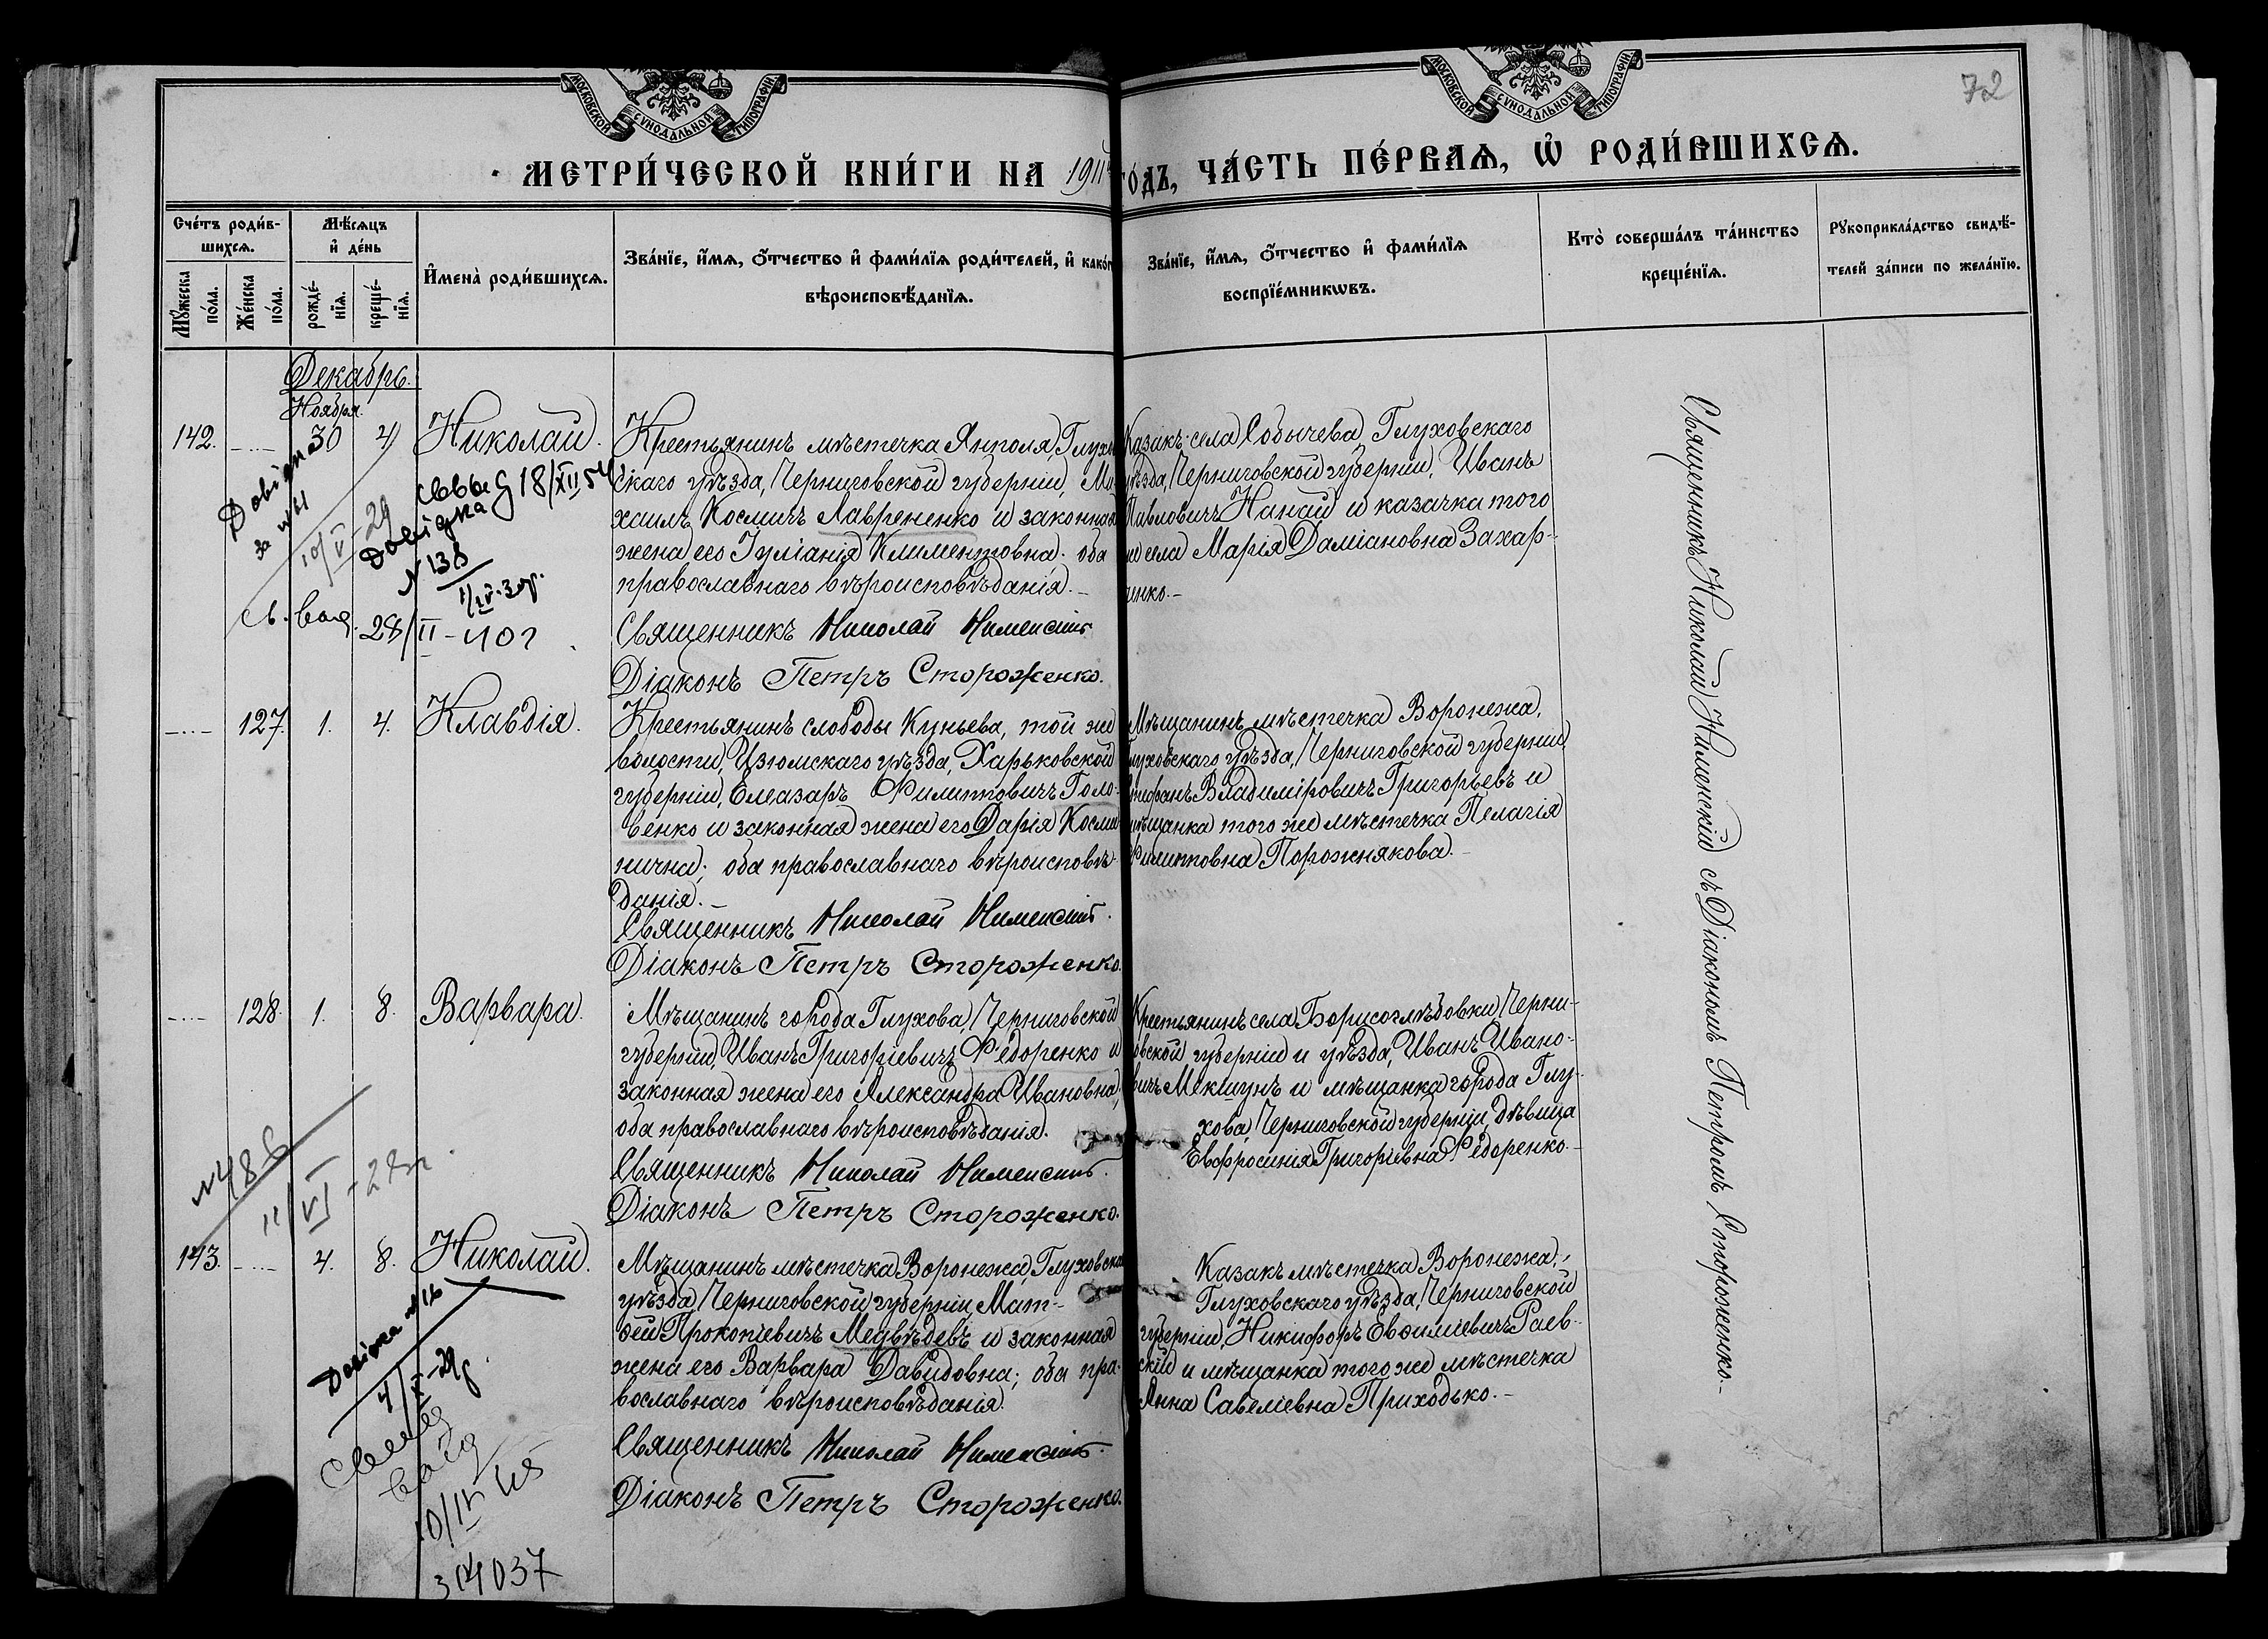 72
МОСКОВСКОЙ СѴНОДАЛЬНОЙ ТИПОГРАФІИ
МОСКОВСКОЙ СѴНОДАЛЬНОЙ ТИПОГРАФІИ
МЕТРИ́ЧЕСКОЙ КНИ́ГИ НА 1911 ГОДЪ, ЧА́СТЬ ПЕ́РВАѦ, Ѡ҆ РОДИ́ВШИХСѦ.
Сче́тъ роди́в-
шихсѧ.
Мꙋ́жеска по́ла.
Же́нска по́ла.
Мѣ́сѧцъ
и҆ де́нь
рожде́-
нїѧ.
креще́-
нїѧ.
И҆мена̀ роди́вшихсѧ.
Зва́нїе, и҆́мѧ, ѻ҆́тчество и҆ фами́лїѧ роди́телей, и҆ како́гѡ
вѣроисповѣ́данїѧ.
Зва́нїе, и҆́мѧ, ѻ҆́тчество и҆ фами́лїѧ
воспрїе́мникѡвъ.
Кто̀ соверша́лъ та́инство
креще́нїѧ.
Рꙋкоприкла́дство свидѣ́-
телей за́писи по жела́нїю.
Декабрь.
Ноября.
142. 30 4 Николай.
Крестьянинъ мѣстечка Янполя, Глухов-
скаго уѣзда, Черниговской губерніи, Ми-
хаилъ Космичъ Лаврененко и законная
жена его Іуліанія Климентовна. оба
православнаго вѣроисповѣданія.
Священникъ Николай Нименскій
Діаконъ Петръ Стороженко.
Казакъ села Собычева, Глуховскаго
уѣзда, Черниговской губерніи, Иванъ
Павловичъ Нанай и казачка того
же села Марія Даміановна Захар-
ченко.
10/V-29
18/XII 54
Довідка
N 138
28/II-40г
127. 1. 4. Клавдія.
Крестьянинъ слободы Куньева, той же
волости, Изюмскаго уѣзда, Харьковской
губерніи, Елеазаръ Филипповичъ Голо-
венко и законная жена его Дарія Косми-
нична; оба православнаго вѣроисповѣ-
данія.
Священникъ Николай Нименскій.
Діаконъ Петръ Стороженко.
Мѣщанинъ мѣстечка Воронежа,
Глуховскаго уѣзда, Черниговской губерніи
Владиміровичъ Григорьевъ и
мѣщанка того же мѣстечка Пелагія
Филипповна Порожнякова.
128. 1. 8. Варвара.
Мѣщанинъ города Глухова, Черниговской
губерніи, Иванъ Григоріевичъ Ѳедоренко и
законная жена его Александра Ивановна,
оба православнаго вѣроисповѣданія.
Священникъ Николай Нименскій.
Діаконъ Петръ Стороженко.
Крестьянинъ села Борисоглѣбовки, Черни-
говской губерніи и уѣзда, Иванъ Ивано-
вичъ Мекшунъ и мѣщанка города Глу-
хова, Черниговской губерніи, дѣвица
Евфросинія Григоріевна Ѳедоренко.
N 486
11/VI-29г.
143. 4. 8. Николай.
Мѣщанинъ мѣстечка Воронежа, Глуховска
уѣзда, Черниговской губерніи, Мат-
ѳей Прокопіевичъ Медвѣдевъ и законная
жена его Варвара Давидовна; оба пра-
вославнаго вѣроисповѣданія.
Священникъ Николай Нименскій.
Діаконъ Петръ Стороженко.
Казакъ мѣстечка Воронежа,
Глуховскаго уѣзда, Черниговской
губерніи, Никифоръ Евѳиміевичъ Раев-
скій и мѣщанка того же мѣстечка
Анна Савеліевна Приходько.
Священникъ Николай Нименскій съ Діакономъ Петромъ Стороженко.